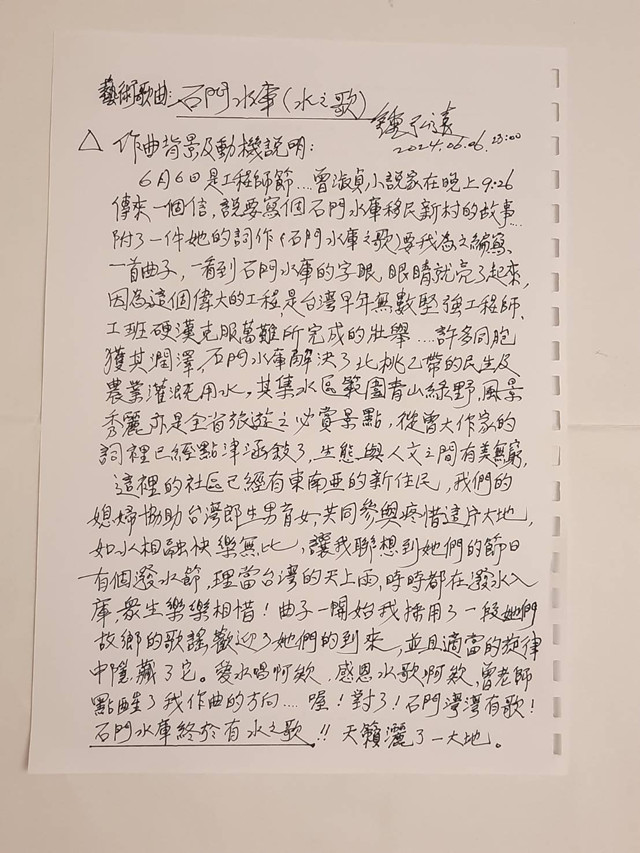 藝術歌曲:石門水庫(水之歌)
2024.06.06. 23:00
△ 作曲背景及動機說明:
6月6日是工程師節....曾淑貞小說家在晚上9:26
傳來一個信,說要寫個石門水庫移民新村的故事...
附了一件她的詞作(石門水庫之歌)要我為之編寫、
一首曲子,一看到石門水庫的字眼,眼睛就亮了起來,
因為這個偉大的工程,是台灣早年無數堅強工程師、
工班硬漢克服萬難所完成的壯舉....許多同胞
獲其潤澤,石門水庫解決了北桃一帶的民生及
農業灌溉用水。其集水區範圍青山綠野,風景
秀麗亦是全省旅遊之必賞景點,從曾大作家的
詞裡已經點津涵敍了,生態與人文之間有美無窮,
這裡的社區已經有東南亞的新住民,我們的
媳婦協助台灣郎生男育女,共同參與疼惜這片大地,
如水相融快樂無比、讓我聯想到她們的節日
有個潑水節,理當台灣的天上雨,時時都在潑水入
庫,眾生樂樂相惜!曲子一開始我採用了一段她們
故鄉的歌謠,歡迎了她們的到來,並且適當的旋律
中隱藏了它。愛水唱啊欸,感恩水歌啊欸,曾老師
點醒了我作曲的方向....喔!對了!石門灣灣有歌!
石門水庫終於有水之歌!!天籟灑了一大地。